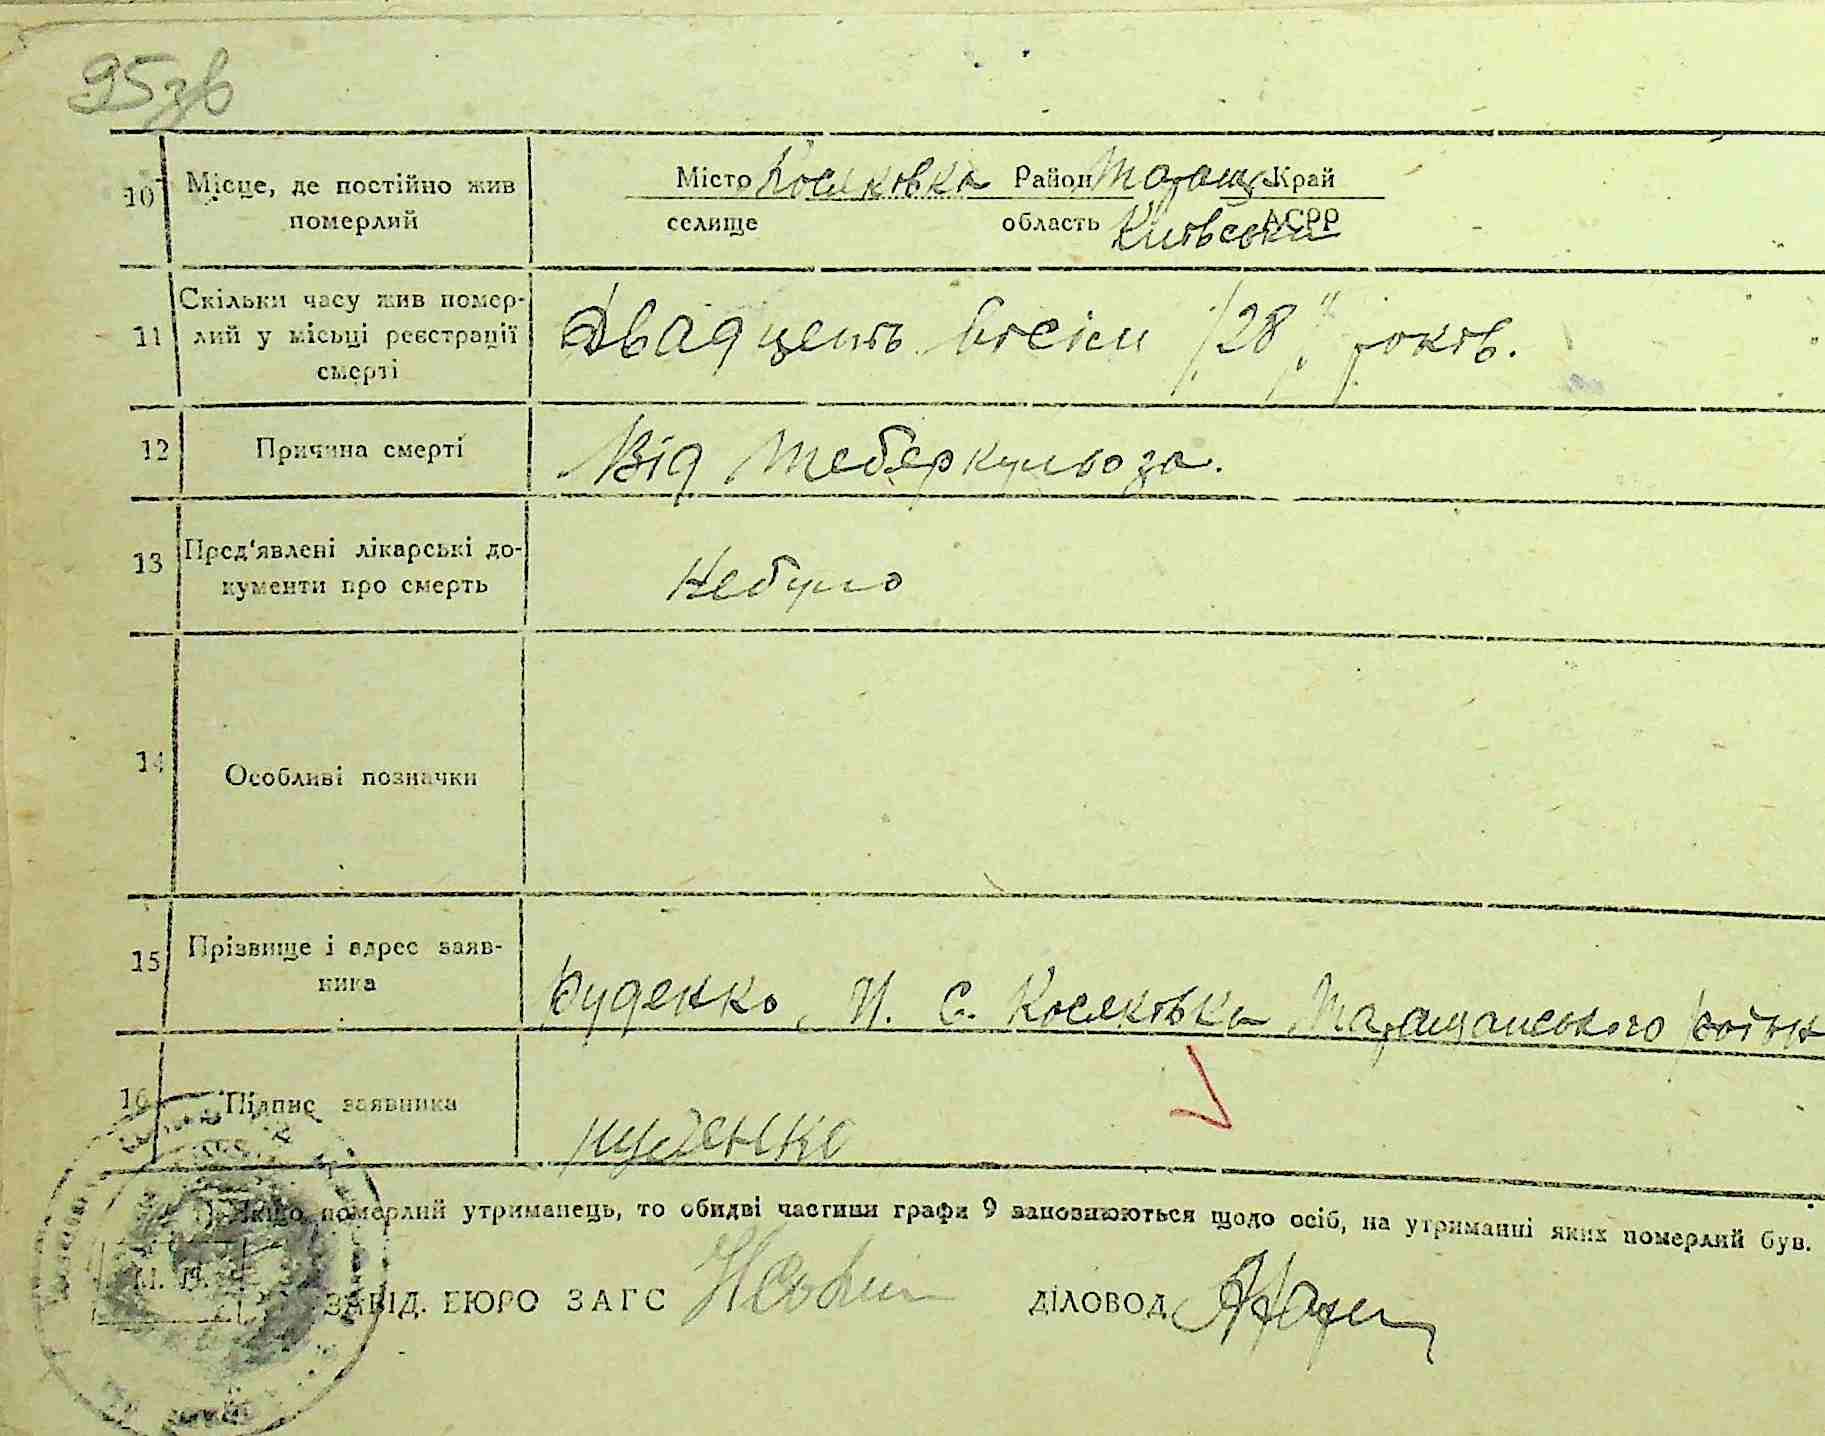 95зв
10 Місце, де постійно жив померлий
Місто Косяковка Район Таращ Край
селище область Київська АСРР
11 Скільки часу жив помер-
лий у місьці реєстрації
смерті
Двадцеть вісім /28" років.
12 Причина смерті
Від теберкульоза.
13 Пред'явлені лікарські до-
кументи про смерть
Небуло
14 Особливі позначки
15 Прізвище і адрес заяв-
ника
Руденко, И. С. Косяковка Таращанського
16 Підпис заявника
руденко
1) Якщо померлий утриманець, то обидві частини графи 9 заповнюються щодо осіб, на утриманні яких померлий був.
М. П.
ЗАВІД. БЮРО ЗАГС
ДІЛОВОД